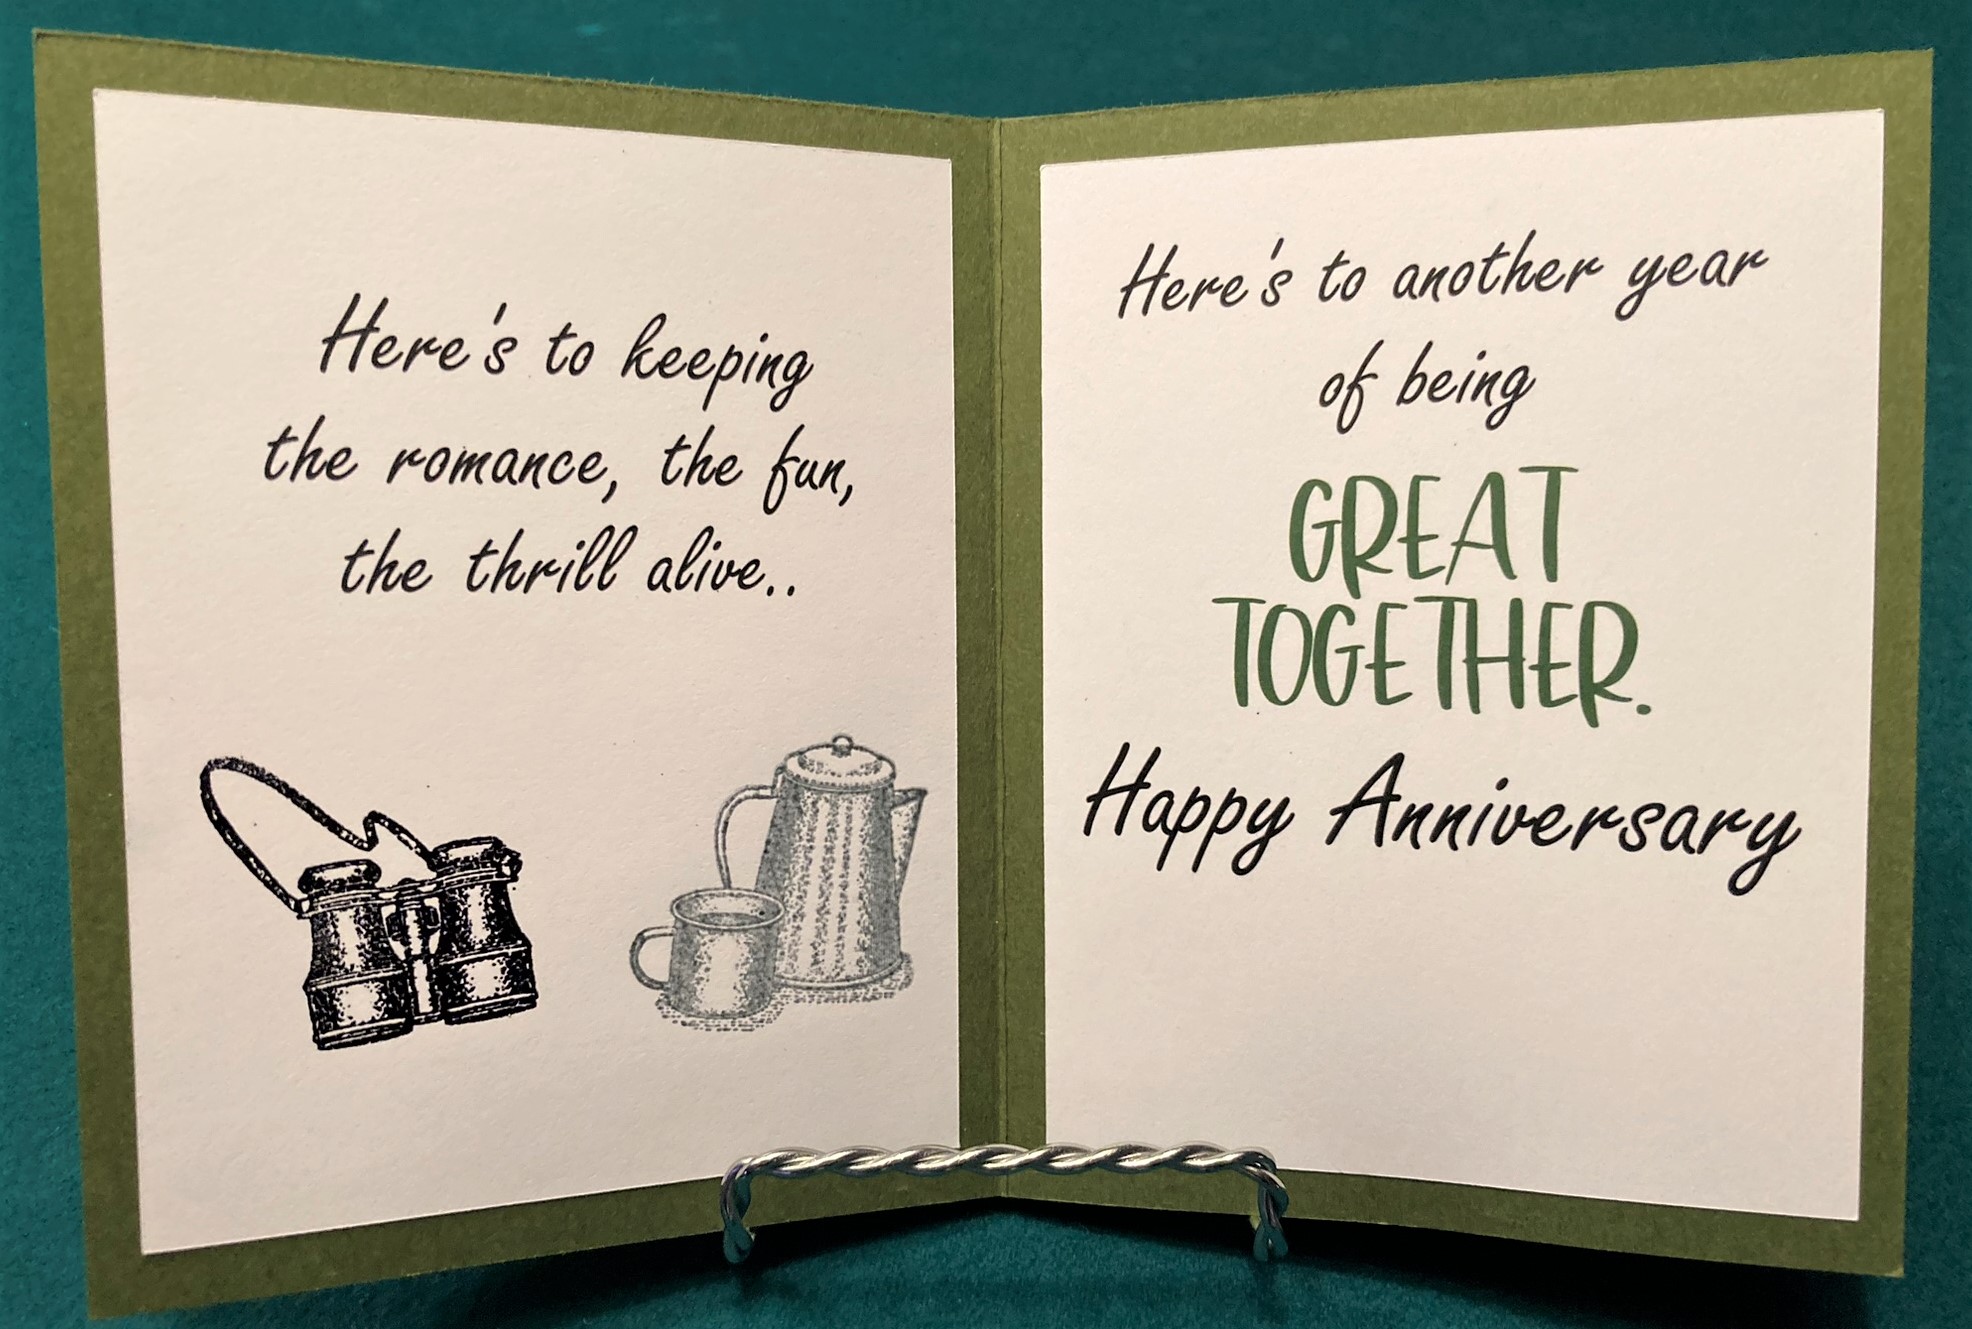 Here's to keeping
the romance, the fun,
the thrill alive..
Here's to another year
of being
GREAT
TOGETHER.
Happy Anniversary